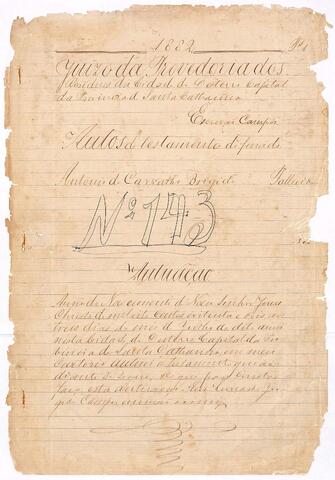 1882
Juizo da Provedoria dos
Residuos da Cidade de Desterro Capital
da Provincia de Santa Catharina
Escrivão Campos
Autos de testamento de finado
Antonio de Carvalho
Nº 143
Autuação
Anno do Nascimento de Nosso Senhor Jesus
Christo de mil oito centos oitenta e dois aos
tres dias do mez de Julho do dito anno
nesta Cidade de Desterro Capital da Pro
vincia de Santa Catharina em meu
Cartorio autuei o testamento que ao
diante se segue, do que para constar
faço esta autuação. Eu
Campos